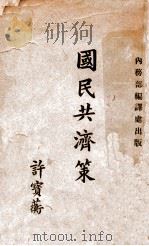 內務部編譯處出版
國民共濟策
許寶蘅
mtoou.info